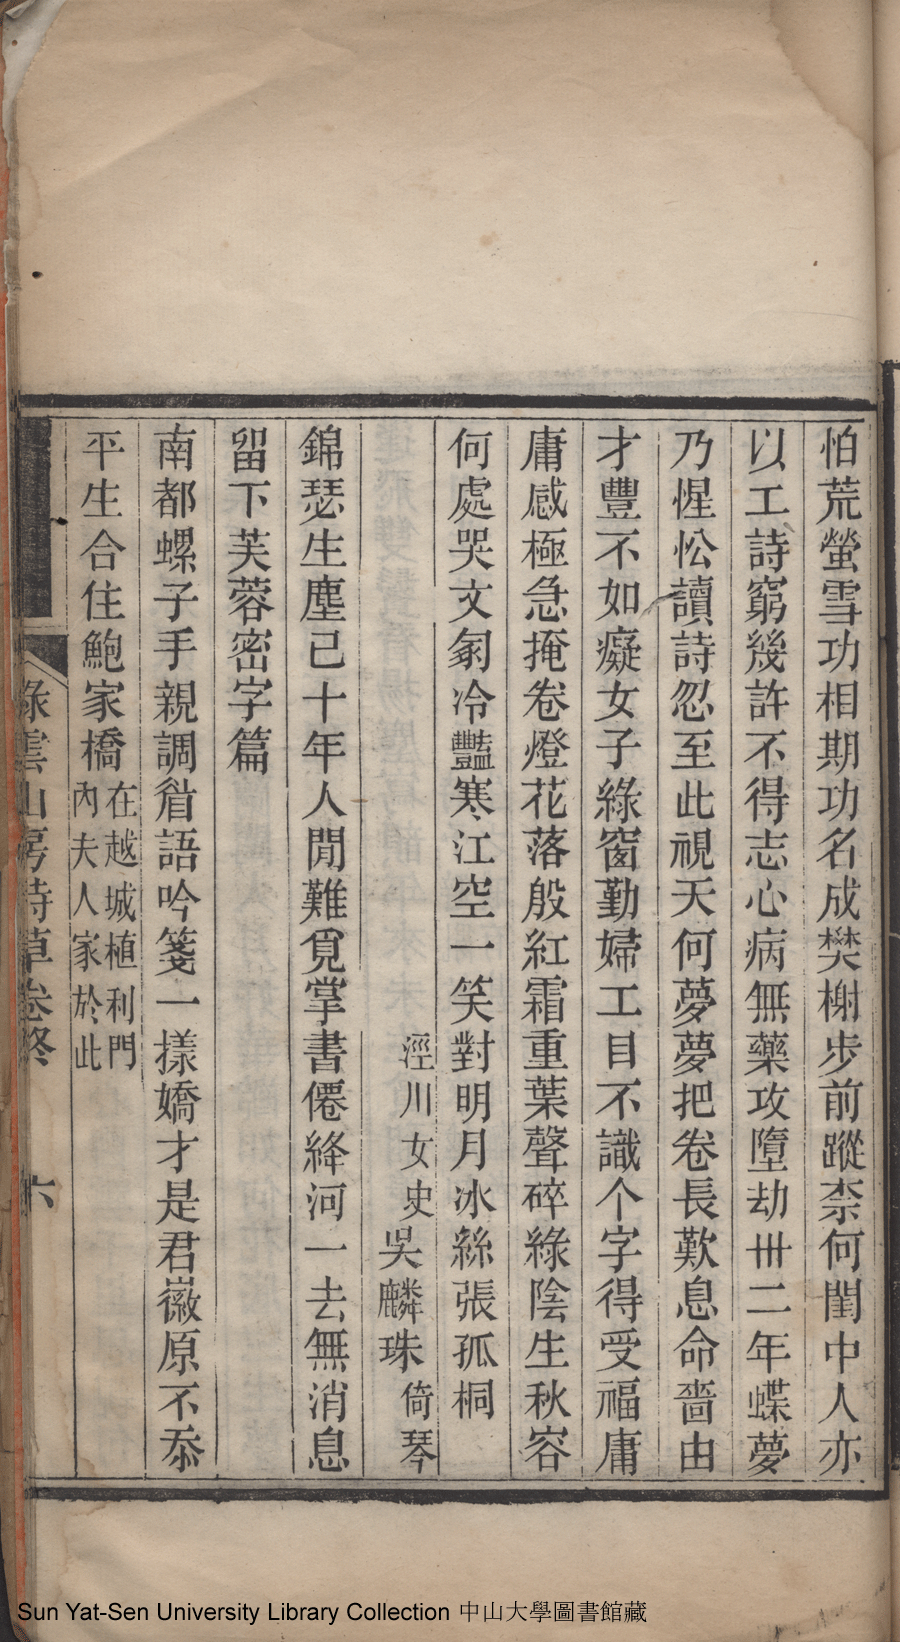 怕荒螢雪功相期功名成樊榭步前蹤柰何閨中人亦
以工詩窮幾許不得志心病無藥攻墮劫卅二年蝶夢
乃惺忪讀詩忍至此視天何夢夢把卷長歎息命嗇由
才豐不如癡女子綠窗勤婦工目不識个字得受福庸
庸感極急掩卷燈花落殷紅霜重葉聲碎綠陰生秋容
何處哭文芻冷豔寒江空一笑對明月冰絲張孤桐
涇川女史吳麟珠倚琴
錦瑟生塵已十年人閒難覓掌書僊絳河一去無消息
留下芙蓉密字篇
南都螺子手親調眉語吟箋一樣嬌才是君嶶原不忝
平生合住鮑家橋在越城植利門
內夫人家於此
綠雲山房詩草卷終
六
Sun Yat-Sen University Library Collection 中山大學圖書館藏